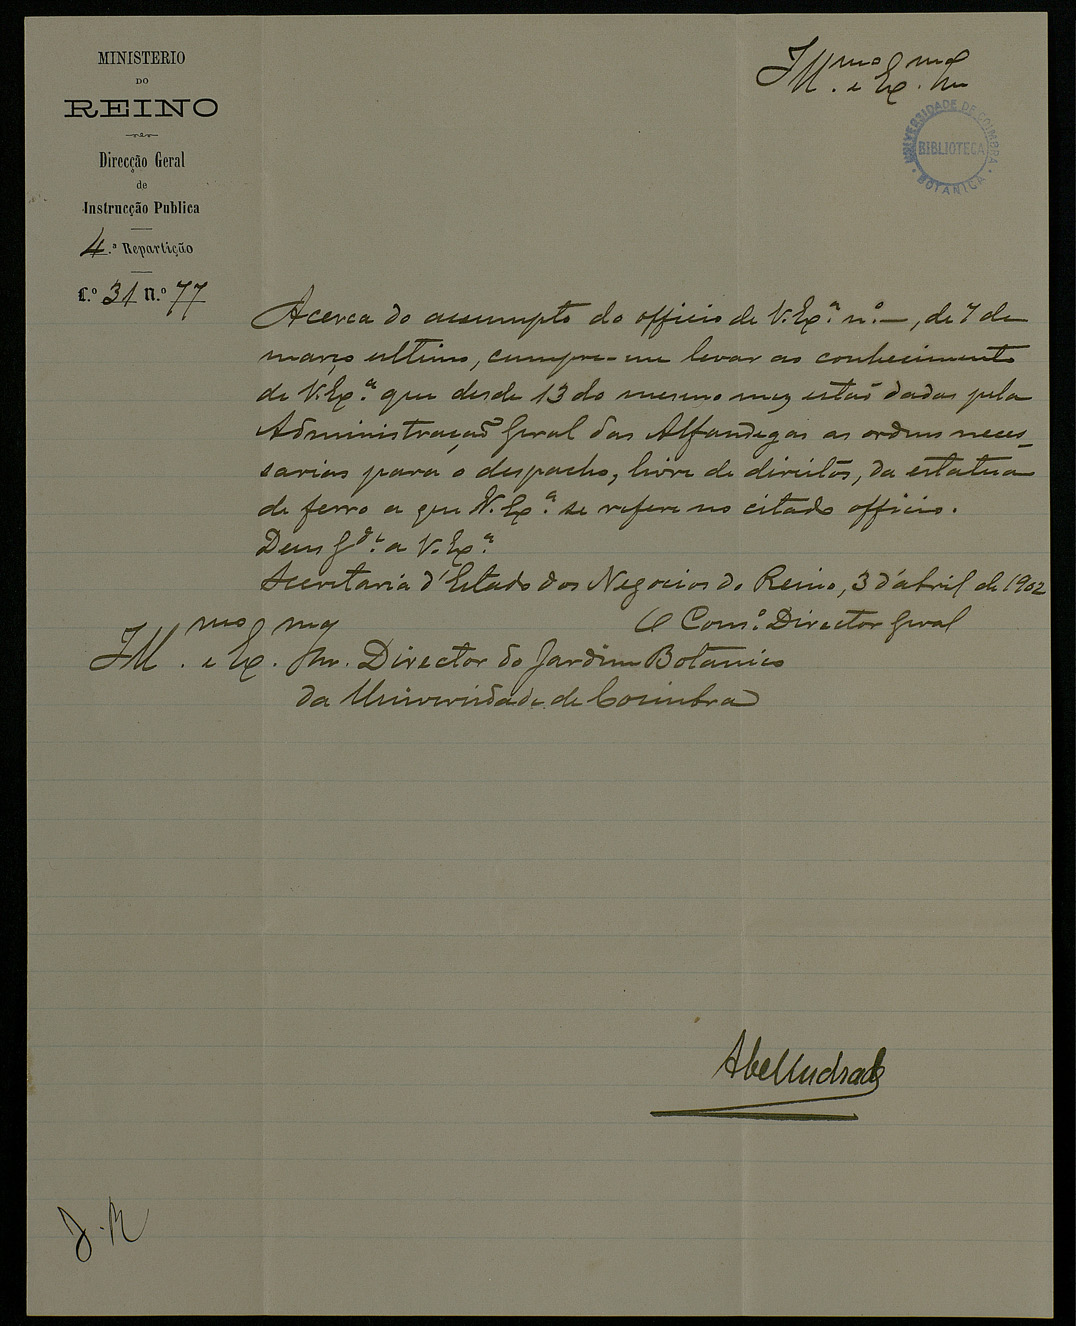 MINISTERIO
DO
REINO
Direcção Geral
de
Instrucção Publica
4.ª Repartição
L.º 31 N.º 77
Ill.mo e Ex.mo Snr
UNIVERSIDADE DE COIMBRA
BIBLIOTECA
BOTANICA
Acerca do assumpto do officio de V. Ex.ª n.º —, de 7 de
março ultimo, cumpre-me levar ao conhecimento
de V. Ex.ª que desde 13 do mesmo mez estão dadas pela
Administração Geral das Alfandegas as ordens neces-
sarias para o despacho, livre de direitos, da estatua
de ferro a que V. Ex.ª se refere no citado officio.
Deus G.de a V. Ex.ª
Secretaria d'Estado dos Negocios do Reino, 3 d'abril de 1902
O Cons.º Director Geral
Ill.mo e Ex.mo Snr. Director do Jardim Botanico
da Universidade de Coimbra
Abel Andrade
J. R